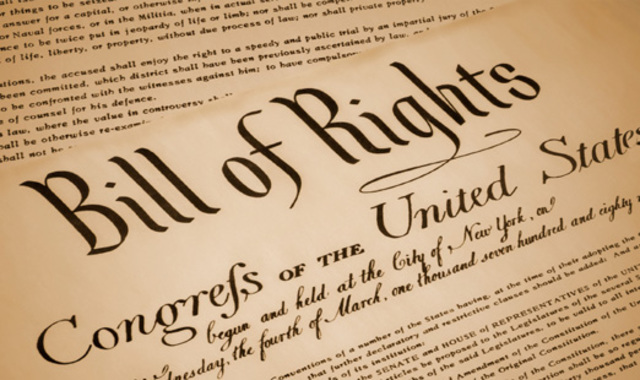 all things to be seized.
answer for a capital, or otherwise in
or Naval forces, or in the Militia, when in actual ser
nce to be twice put in jeopardy of life or limb; nor shall be compel
of life, liberty, or property, without due process of law; nor shall private property
utions, the accused shall enjoy the right to a speedy and public trial by an impartial jury of the
been committed, which district shall have been previously ascertained by law,
to be confronted with the witnesses against him; to have compulsor
of counsel for his defence.
law, where the value in controversy shall
all be otherwise re-exami
shall not be
Bill of Rights
Congreſs OF THE United States
begun and held at the City of New York, on
dnesday, the fourth of March, one thousand seven hundred and eighty n
Conventions of a number of the States having, at the time of their adopting the
that further declaratory and restrictive clauses should be added: And
of its institution:
the SENATE and HOUSE of REPRESENTATIVES of the UN
icles be proposed to the Legislatures of the several
of the said Legislatures, to be valid to all inte
Amendment of the Constitution of the
the Original Constitution.